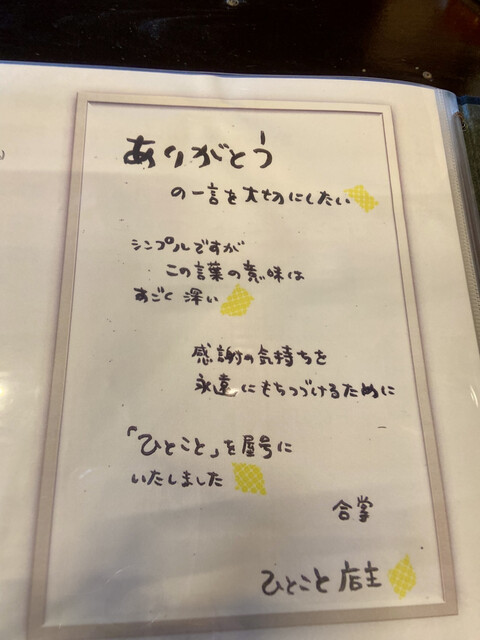 ありがとう
の一言を大切にしたい
シンプルですが
この言葉の意味は
すごく深い
感謝の気持ちを
永遠にもちつづけるために
「ひとこと」を屋号に
いたしました
合掌
ひとこと 店主